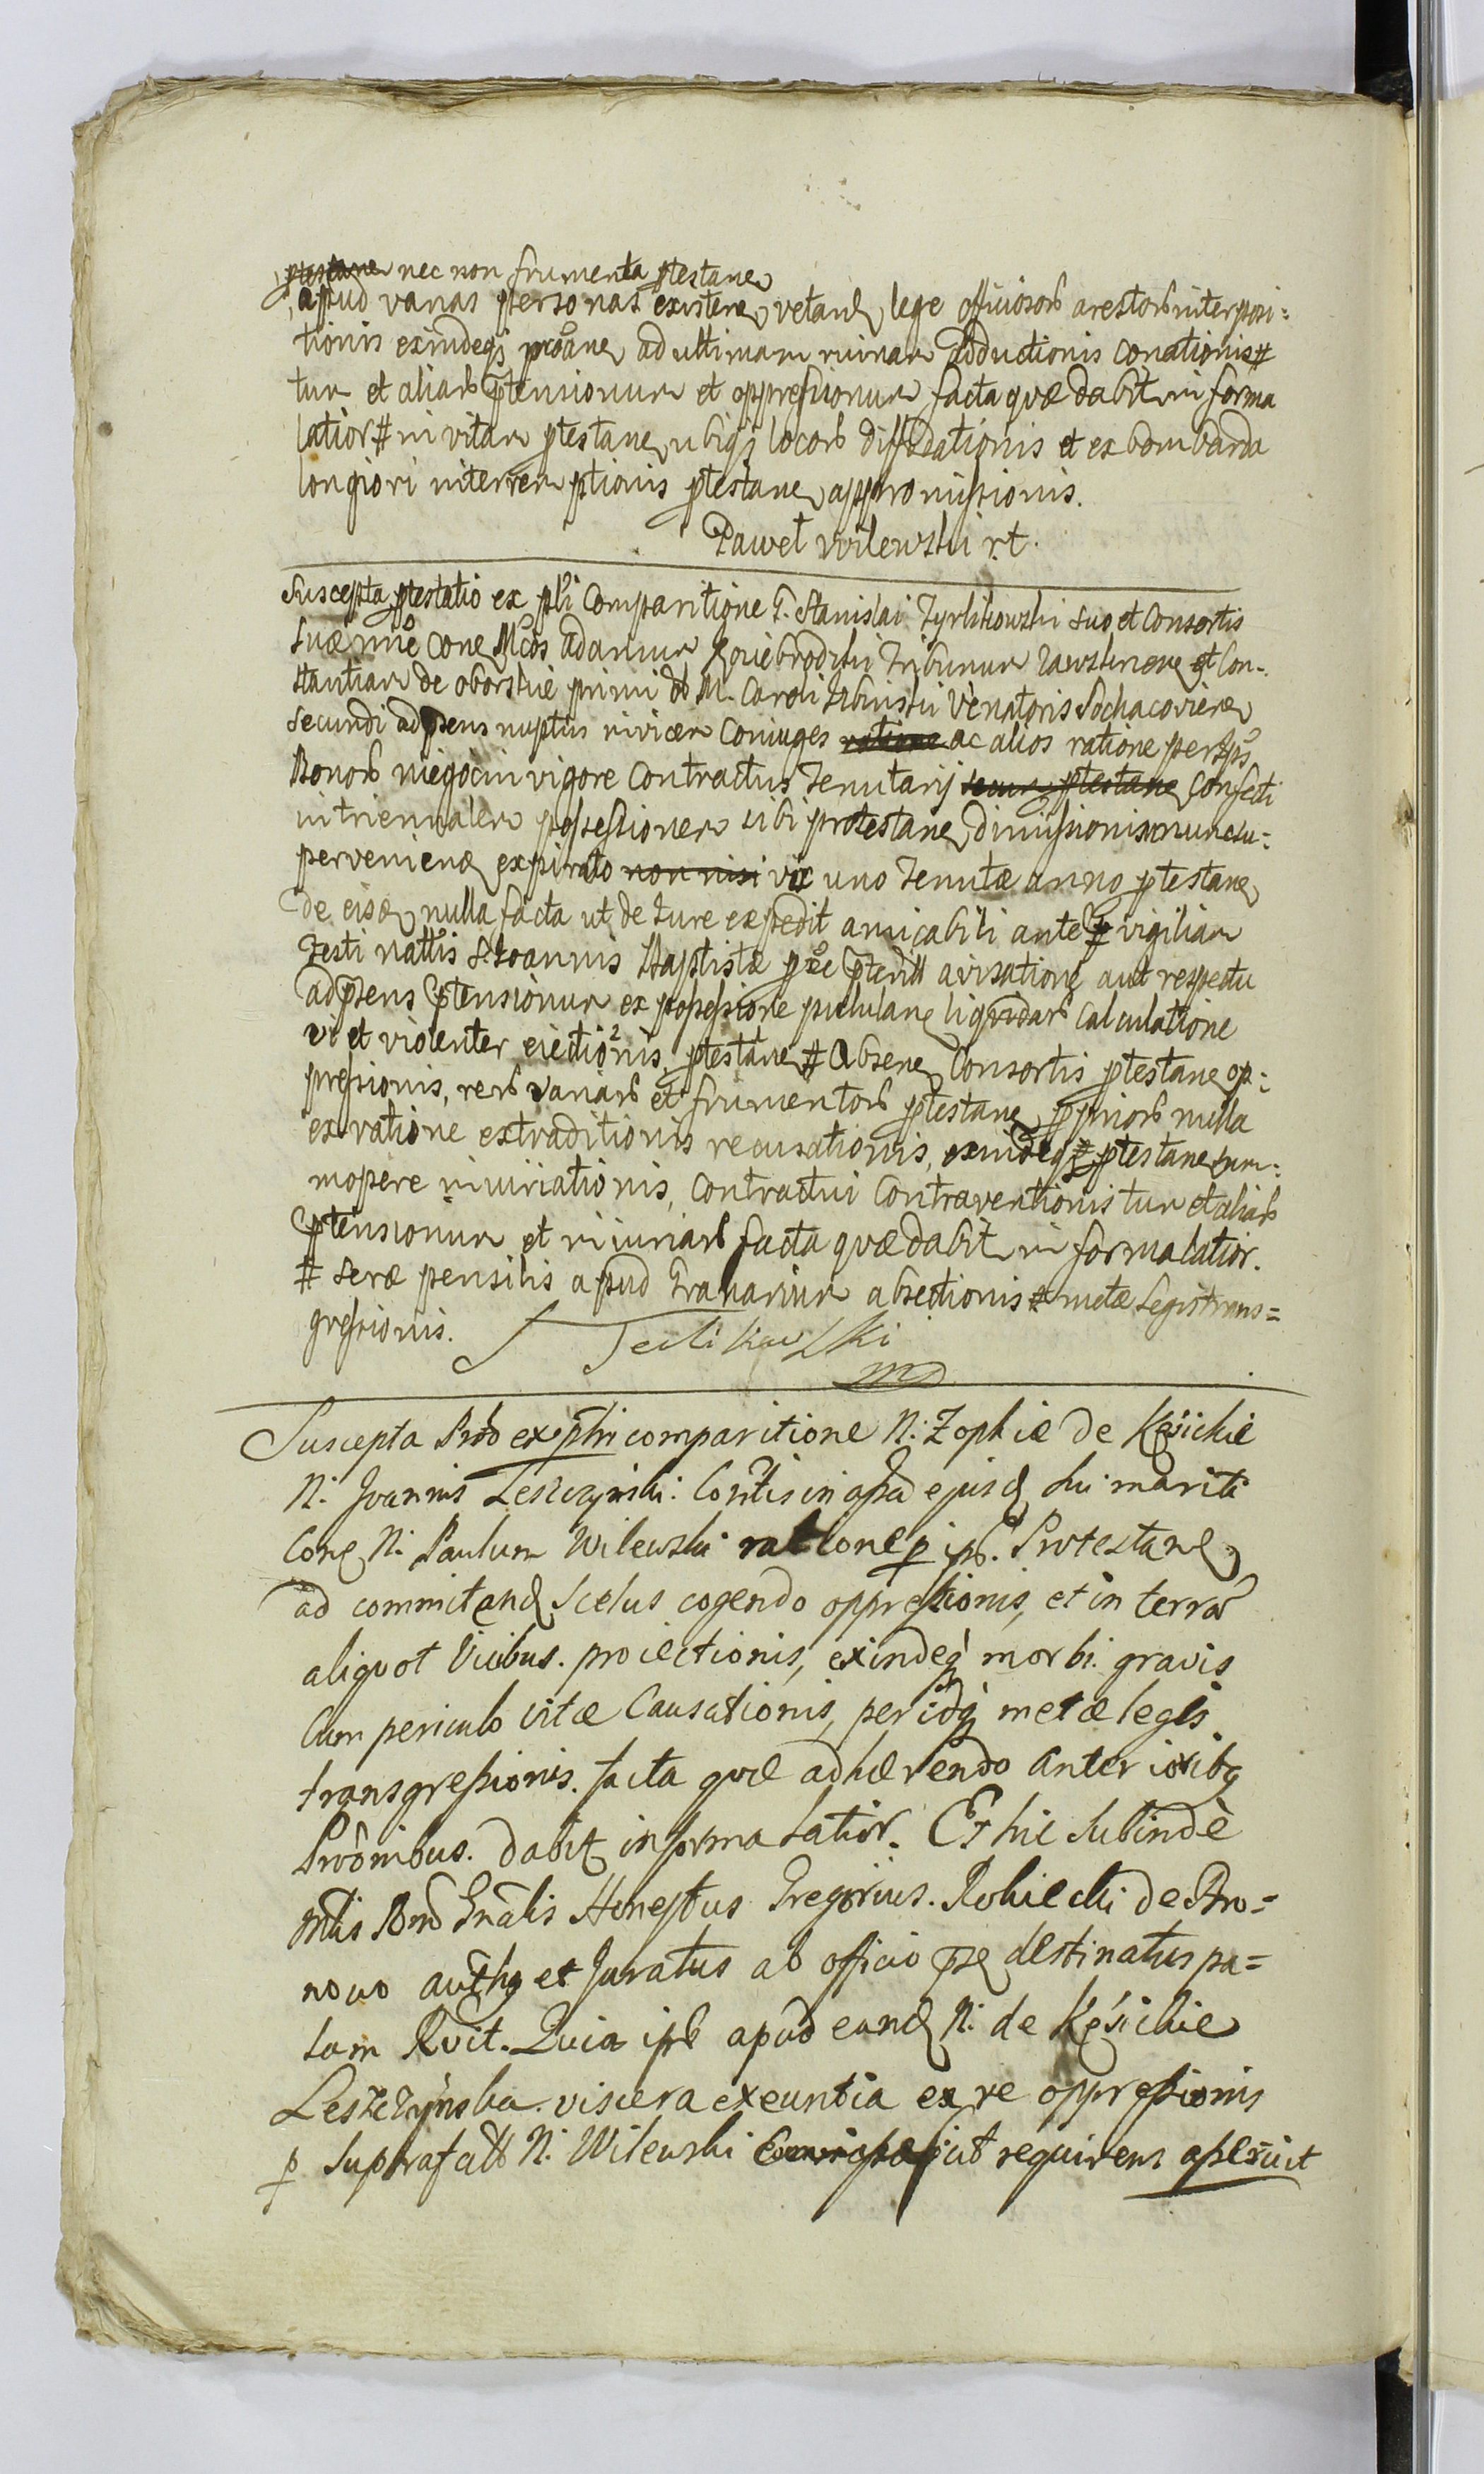 ptestane nec non frumenta ptestane
apud varias personas existene vetand lege officiosorb arestorb interposi=
tionis exindeqz proane ad ultimam ruinam adductionis conationis #
tum et aliarb ptensionum et oppressionum facta quæ dabit in forma
latior # in vitam ptestane ubiqz locorb diffidationis et ex bombarda
longiori interremptionis ptestane appromissionis.
Paweł Wilewski rt.
Suscepta ptestatio ex pli Comparitione G. Stanislai Tyrlikowski suo et Consortis
suæ nnie Cone Mcos Adamum Tribunum Rawskinene et Con=
stantiam de Oborskie primi M. Caroli Venatoris Sochacoviene
Secundi ad psens nuptus invicem Coniuges ratione ac alios ratione per
Bonorb niegocin vigore Contractus Tenutarij ptestane Confecti
in triennalem possessionem sibi protestane dimissionis nunc su=
perveniend expirato non nisi vix uno Tenutæ anno ptestane
de eisd nulla facta ut de Iure expedit amicabili ante vigiliam
Festi nattis S. Ioannis Baptistæ avisatione aut respectu
ad psens ptensionum ex possessione pullulane liquidarb Calculatione
vi et violenter eiectionis, ptestane # Absene Consortis ptestane op=
pressionis, rerb variarb et frumentorb ptestane ppriorb nulla
ex ratione extraditionis recusationis, exindeqz ptestane sum=
mopere iniuriationis, Contractui Contraventionis tum et aliarb
ptensionum et iniuriarb facta quæ dabit in forma latior.
# seræ pensilis apud Granarium absectionis # metæ Legis trans=
gressionis. S Terlikowski
mp
Suscepta Prto ex pllri comparitione N: Zophiæ de Kęsickie
N: Joannis Leszczynski: Contis in assa ejusd sui mariti
Cone N: Paulum Wilewski ratione p ips. Protestane
ad commitand scelus cogendo oppressionis, et in terra
aliquot Vicibus. proiectionis, exindeq morbi gravis
Cum periculo vitæ Causationis, peridq metæ legis
transgressionis. facta quæ adhærendo anteriorib9
Prtonibus. dabit in forma latior. Et hic subindè
mtis Rni Gnalis Honestus Gregorius. Robiecki de Bro=
nowo auth9 et Juratus ab officio pse destinatus pa=
lam Rvit. Quia ips apud eand N: de Kęsickie
Leszczynska. viscera exeuntia ex re oppressionis
p suprafatt N: Wilewski requirens aperuit